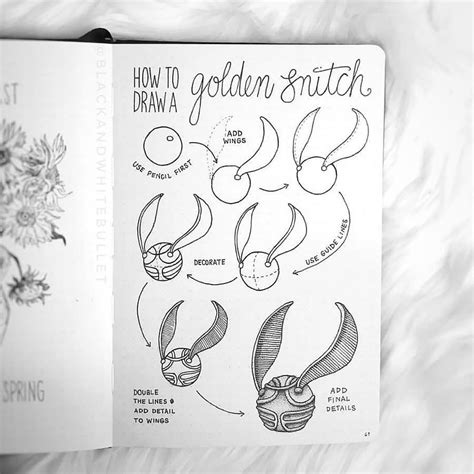 ST
SPRING
@BLACKANDWHITEBULLET
HOW TO
DRAW A
golden snitch
USE PENCIL FIRST
ADD
WINGS
USE GUIDE LINES
DECORATE
DOUBLE
THE LINES &
ADD DETAIL
TO WINGS
ADD
FINAL
DETAILS